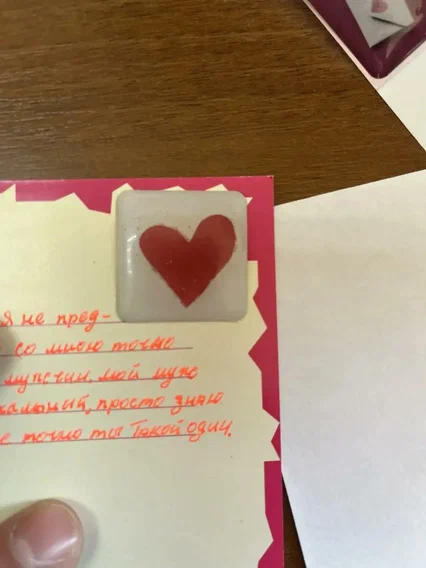 я не пред-
со мною точно
мужчин, мой муж
просто знаю
точно ты Такой один.